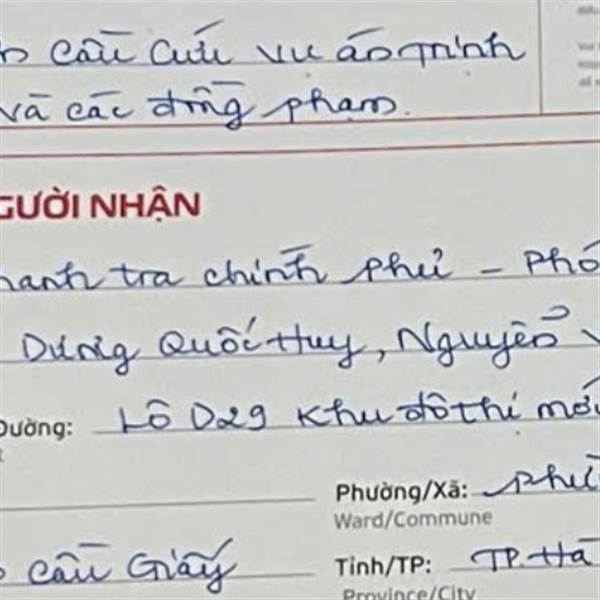 cầu cứu vụ án minh
và các đồng phạm.
GƯỜI NHẬN
hanh tra chính phủ - Phó
Dương Quốc Huy, Nguyễn V
Đường: Lô D29 Khu đô thị mới
Phường/Xã:
Ward/Commune
cầu Giấy Tỉnh/TP: TP. Hà
Province/City